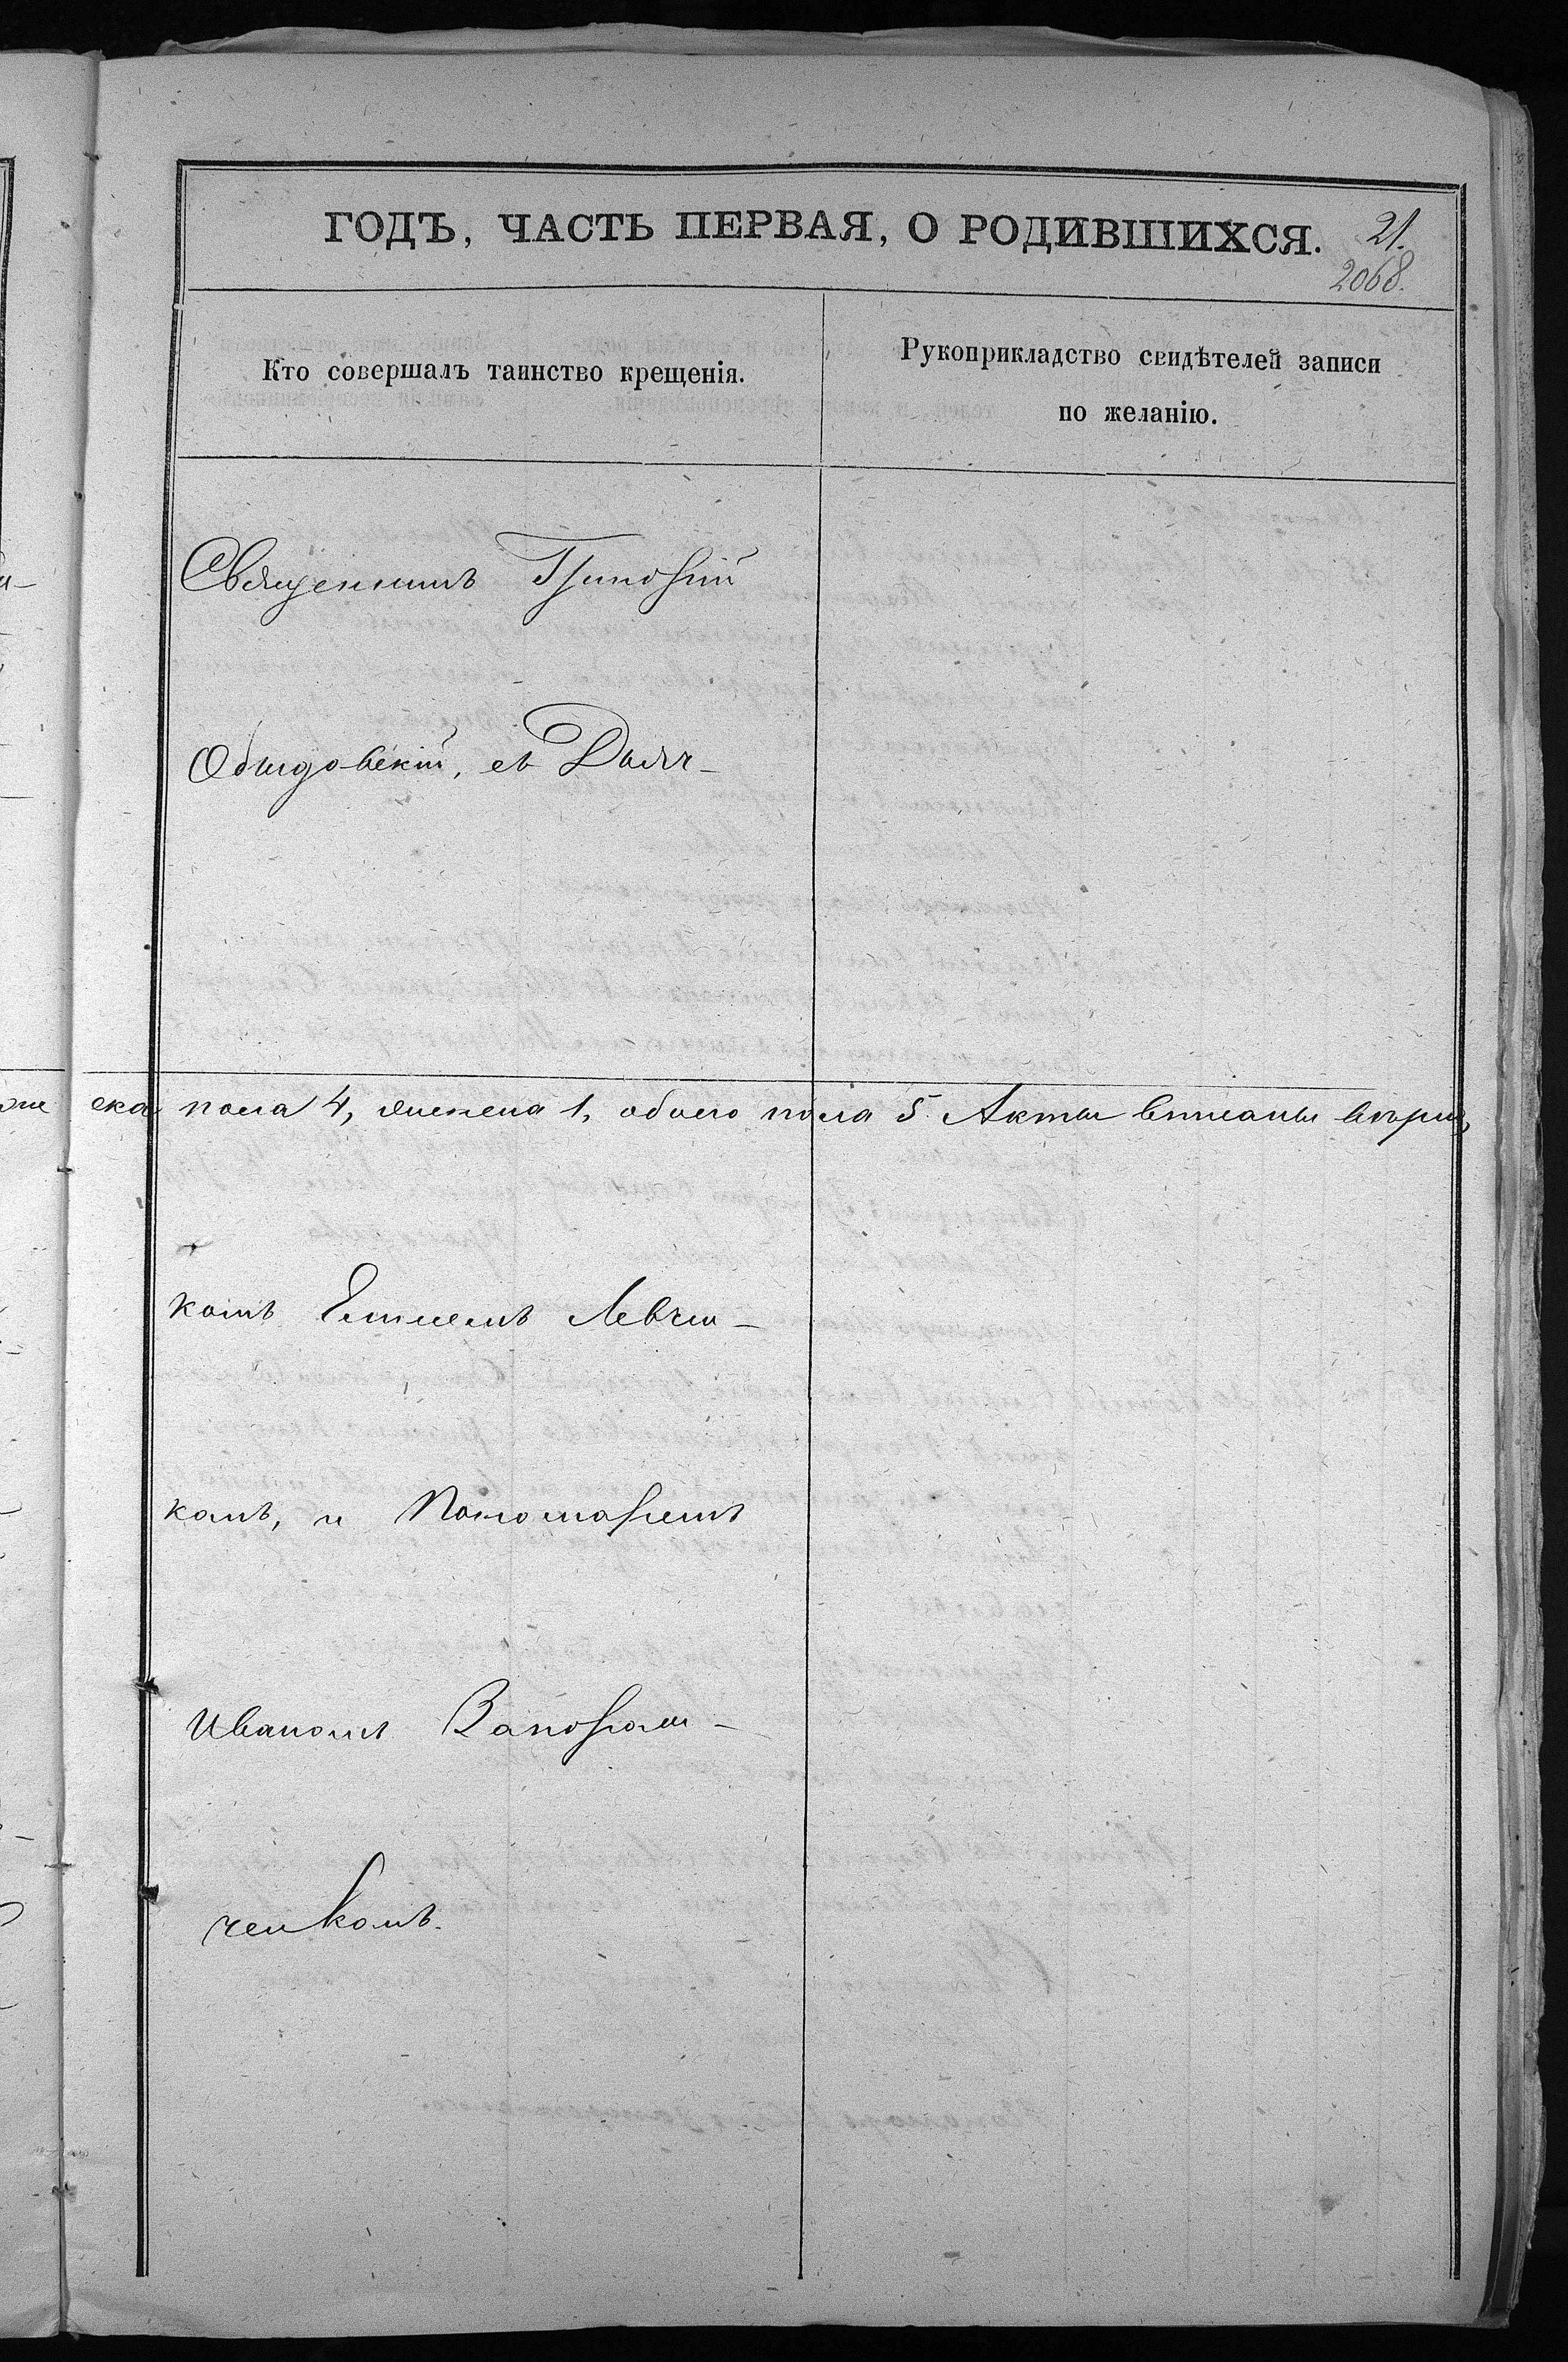 ГОДЪ, ЧАСТЬ ПЕРВАЯ, О РОДИВШИХСЯ.
21.
2068.
Кто совершалъ таинство крещенія.
Рукоприкладство свидѣтелей записи
по желанію.
Священникъ Григорій
Обидовскій, съ Дьяч-
ска пола 4, женска 1, обоего пола 5. Акты вписаны вѣрно,
комъ Левчи-
комъ, и Пономаремъ
Иваномъ Запорож-
ченкомъ.